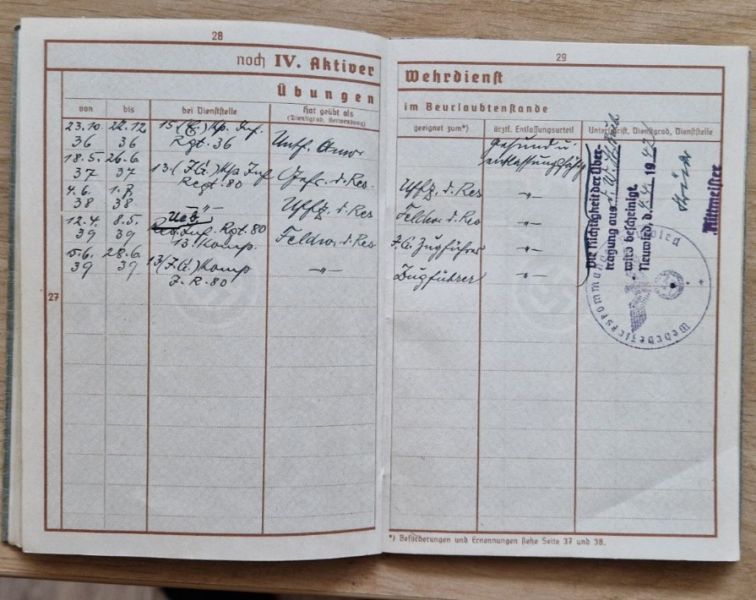 28
noch IV. Aktiver
Übungen
von
bis
bei Dienststelle
Hat geübt als
(Dienstgrad, Verwendung)
23.10. 22.12 15.(E.)Kp. Inf.
36 36 Rgt. 36 Uffz. Anw.
18.5. 26.6 13.(I.G.)Kp. Inf
37 37 Regt. 80 Gefr. d. Res.
4.6. 1.7.
38 38 -"- Uffz. d. Res
12.4. 8.5. Inf. Rgt. 80
39 39 13. Komp. Feldw. d. Res
5.6. 28.6. 13(I.G.) Komp
39 39 I.R. 80 -"-
27
29
Wehrdienst
im Beurlaubtenstande
geeignet zum*)
ärztl. Entlassungsurteil
Unterschrift, Dienstgrad, Dienststelle
Gesund u.
entlassungsfähig
Uffz. d. Res -"-
Feldw. d. Res -"-
I.G. Zugführer -"-
Zugführer -"-
Die Richtigkeit der Über-
tragung aus
wird bescheinigt
Neuwied d. 19
Rittmeister
Wehrbezirkskommando Neuwied
*) Beförderungen und Ernennungen siehe Seite 37 und 38.